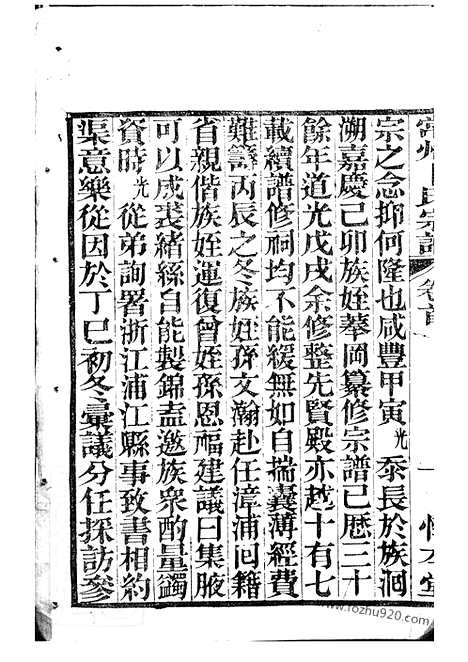 宗之念抑何隆也咸豐甲寅光忝長於族洄
溯嘉慶己卯族姪莘岡纂修宗譜已歴三十
餘年道光戊戌余修整先賢殿亦越十有七
載續譜修祠均不能緩無如自揣囊薄經費
難籌丙辰之冬族姪孫文瀚赴任漳浦囘籍
省親偕族姪運復曾姪孫恩福建議曰集腋
可以成裘緒絲自能製錦盍邀族衆酌量蠲
資時光從弟詢署浙江浦江縣事致書相約
渠意樂從因於丁巳初冬彙議分任採訪參
www.fozhu920.com